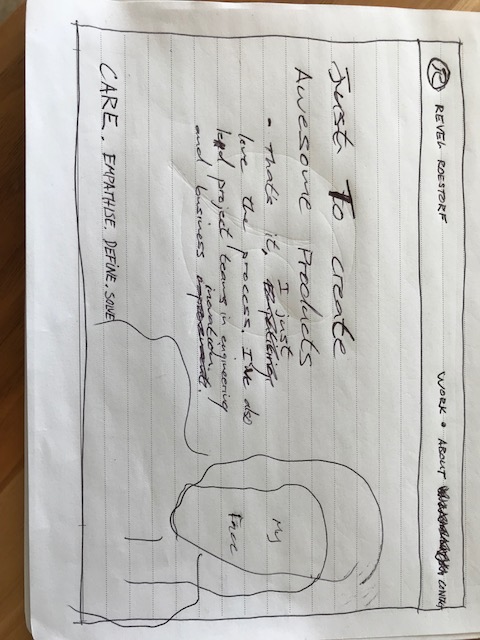 R REVEL ROESTORF WORK • ABOUT CONTACT
Just To create
Awesome Products
• That's it, I just
love the process. I've also
lead project teams in engineering
and business inovation.
CARE. EMPATHISE. DEFINE. SOLVE
My
Face